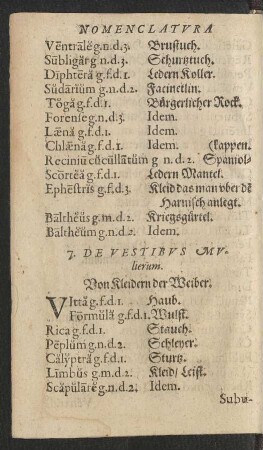 NOMENCLATVRA
Vēntrālĕ g.n.d.3. Bruſtuch.
Sūbligăr g n.d.3. Schurtztuch.
Dīphtĕră g.f.d.1. Ledern Koller.
Sūdārĭum g.n.d.2. Facinetlin.
Tŏgă g.f.d.1. Bürgerlicher Rock.
Forenſe g.n.d.3. Idem.
Lænă g.f.d.1. Idem.
Chlænă g.f.d.1. Idem. (kappen.
Reciniū cŭcūllātum g n. d.2. Spaniols
Scōrtĕă g.f.d.1. Ledern Mantel.
Ephēſtrĭs g.f.d.3. Kleid das man vber dē
Harniſch anlegt.
Bālthĕŭs g.m.d.2. Kriegsgürtel.
Bālthĕŭm g.n.d.2. Idem.
7. DE VESTIBVS MV-
lierum.
Von Kleidern der Weiber.
VIttă g.f.d.1. Haub.
Fōrmŭlă g.f.d.1. Wulſt.
Rica g.f.d.1. Stauch.
Pēplŭm g.n.d.2. Schleyer.
Călȳptră g.f.d.1. Sturtz.
Līmbŭs g.m.d.2. Kleid/ Leiſt.
Scăpŭlārĕ g.n.d.2. Idem.
Subu-